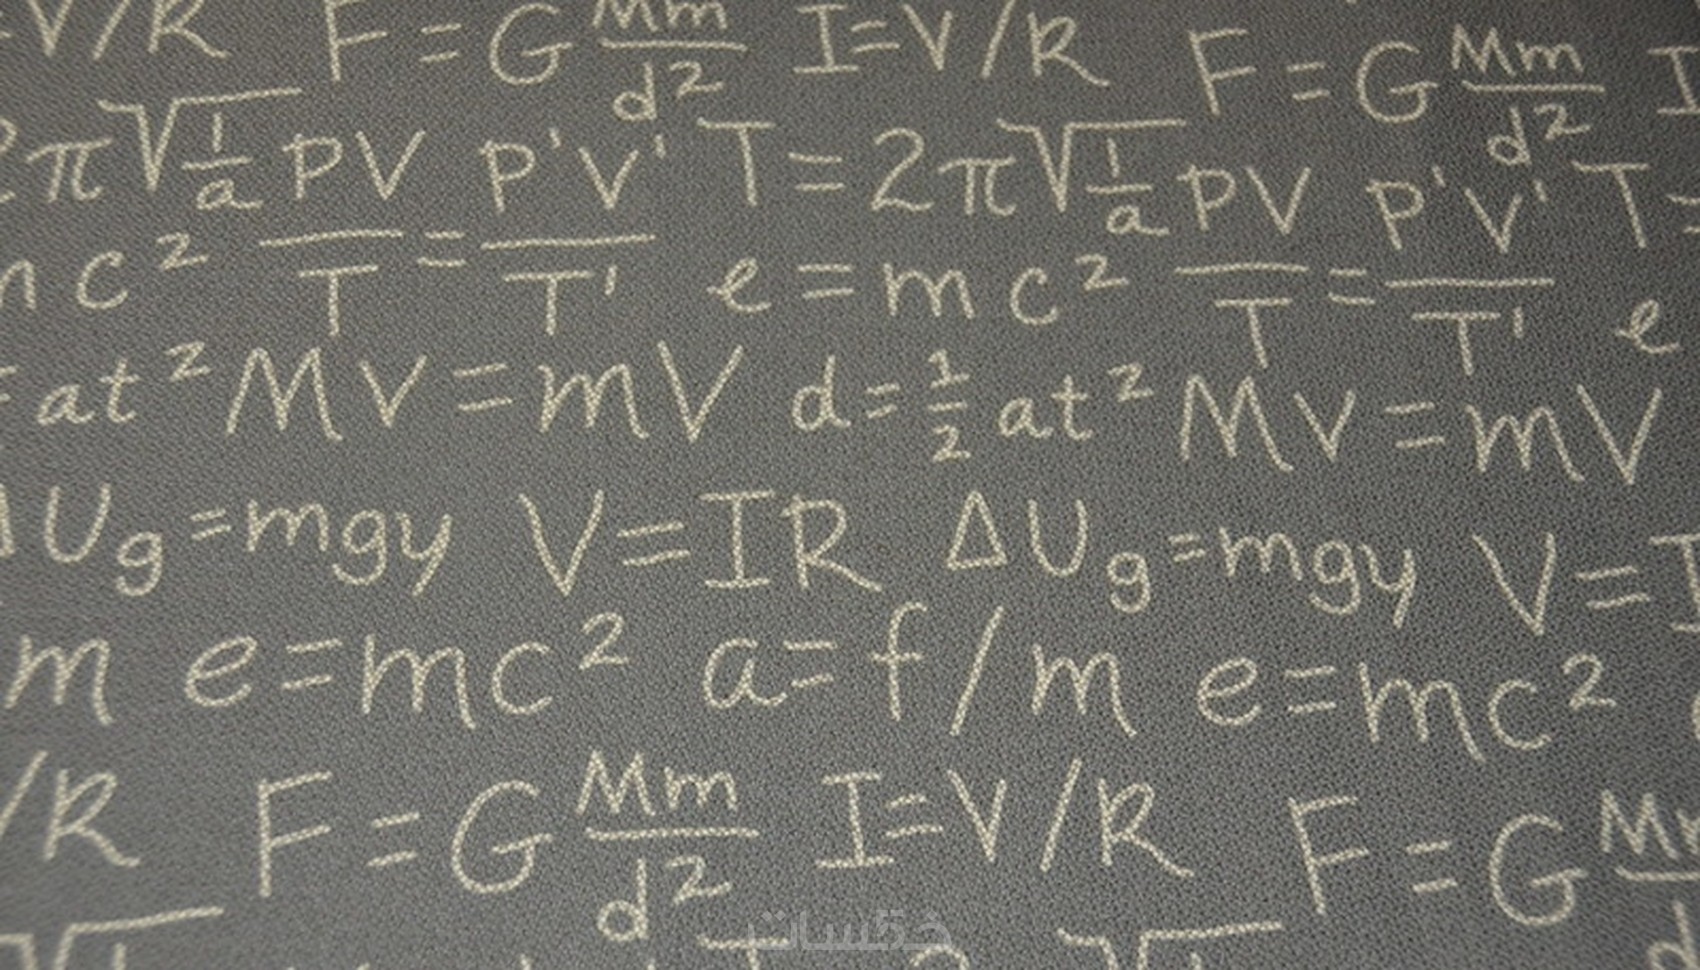 V/R F=G Mm/d² I=V/R F=G Mm/d² I
2π√(1/a) PV/T = P'V'/T' T=2π√(1/a) PV/T = P'V'/T' T=
mc² e=mc² e
=at² MV=mV d=½at² MV=mV
ΔUg=mgy V=IR ΔUg=mgy V=I
m e=mc² a=f/m e=mc²
/R F=G Mm/d² I=V/R F=G M
خمسات